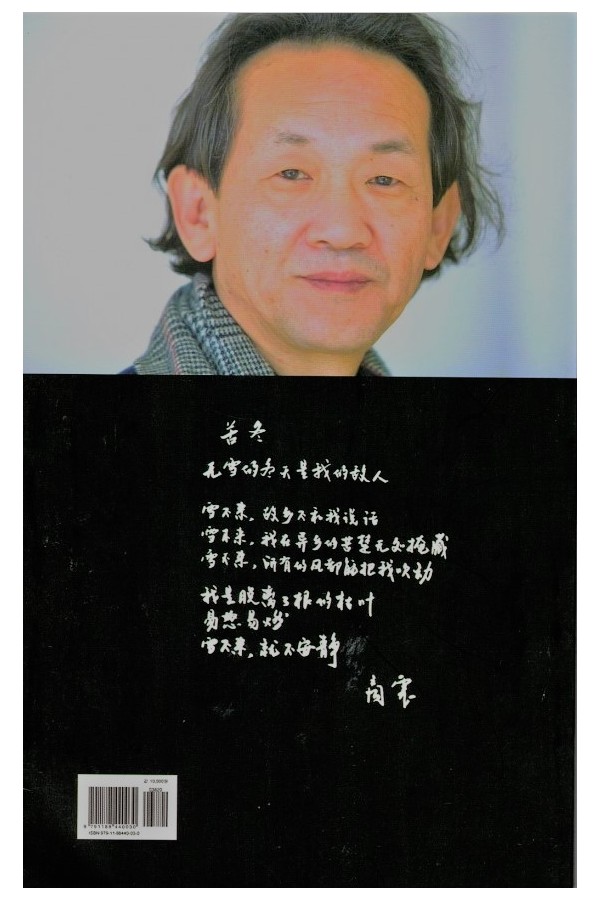 苦冬
无雪的冬天是我的敌人
雪不来，故乡不和我说话
雪不来，我在异乡的苦楚无处掩藏
雪不来，所有的风都能把我吹动
我是脱离了根的枯叶
易怒易燃
雪不来，就不安静
商震
03820
ISBN 979-11-86440-03-2